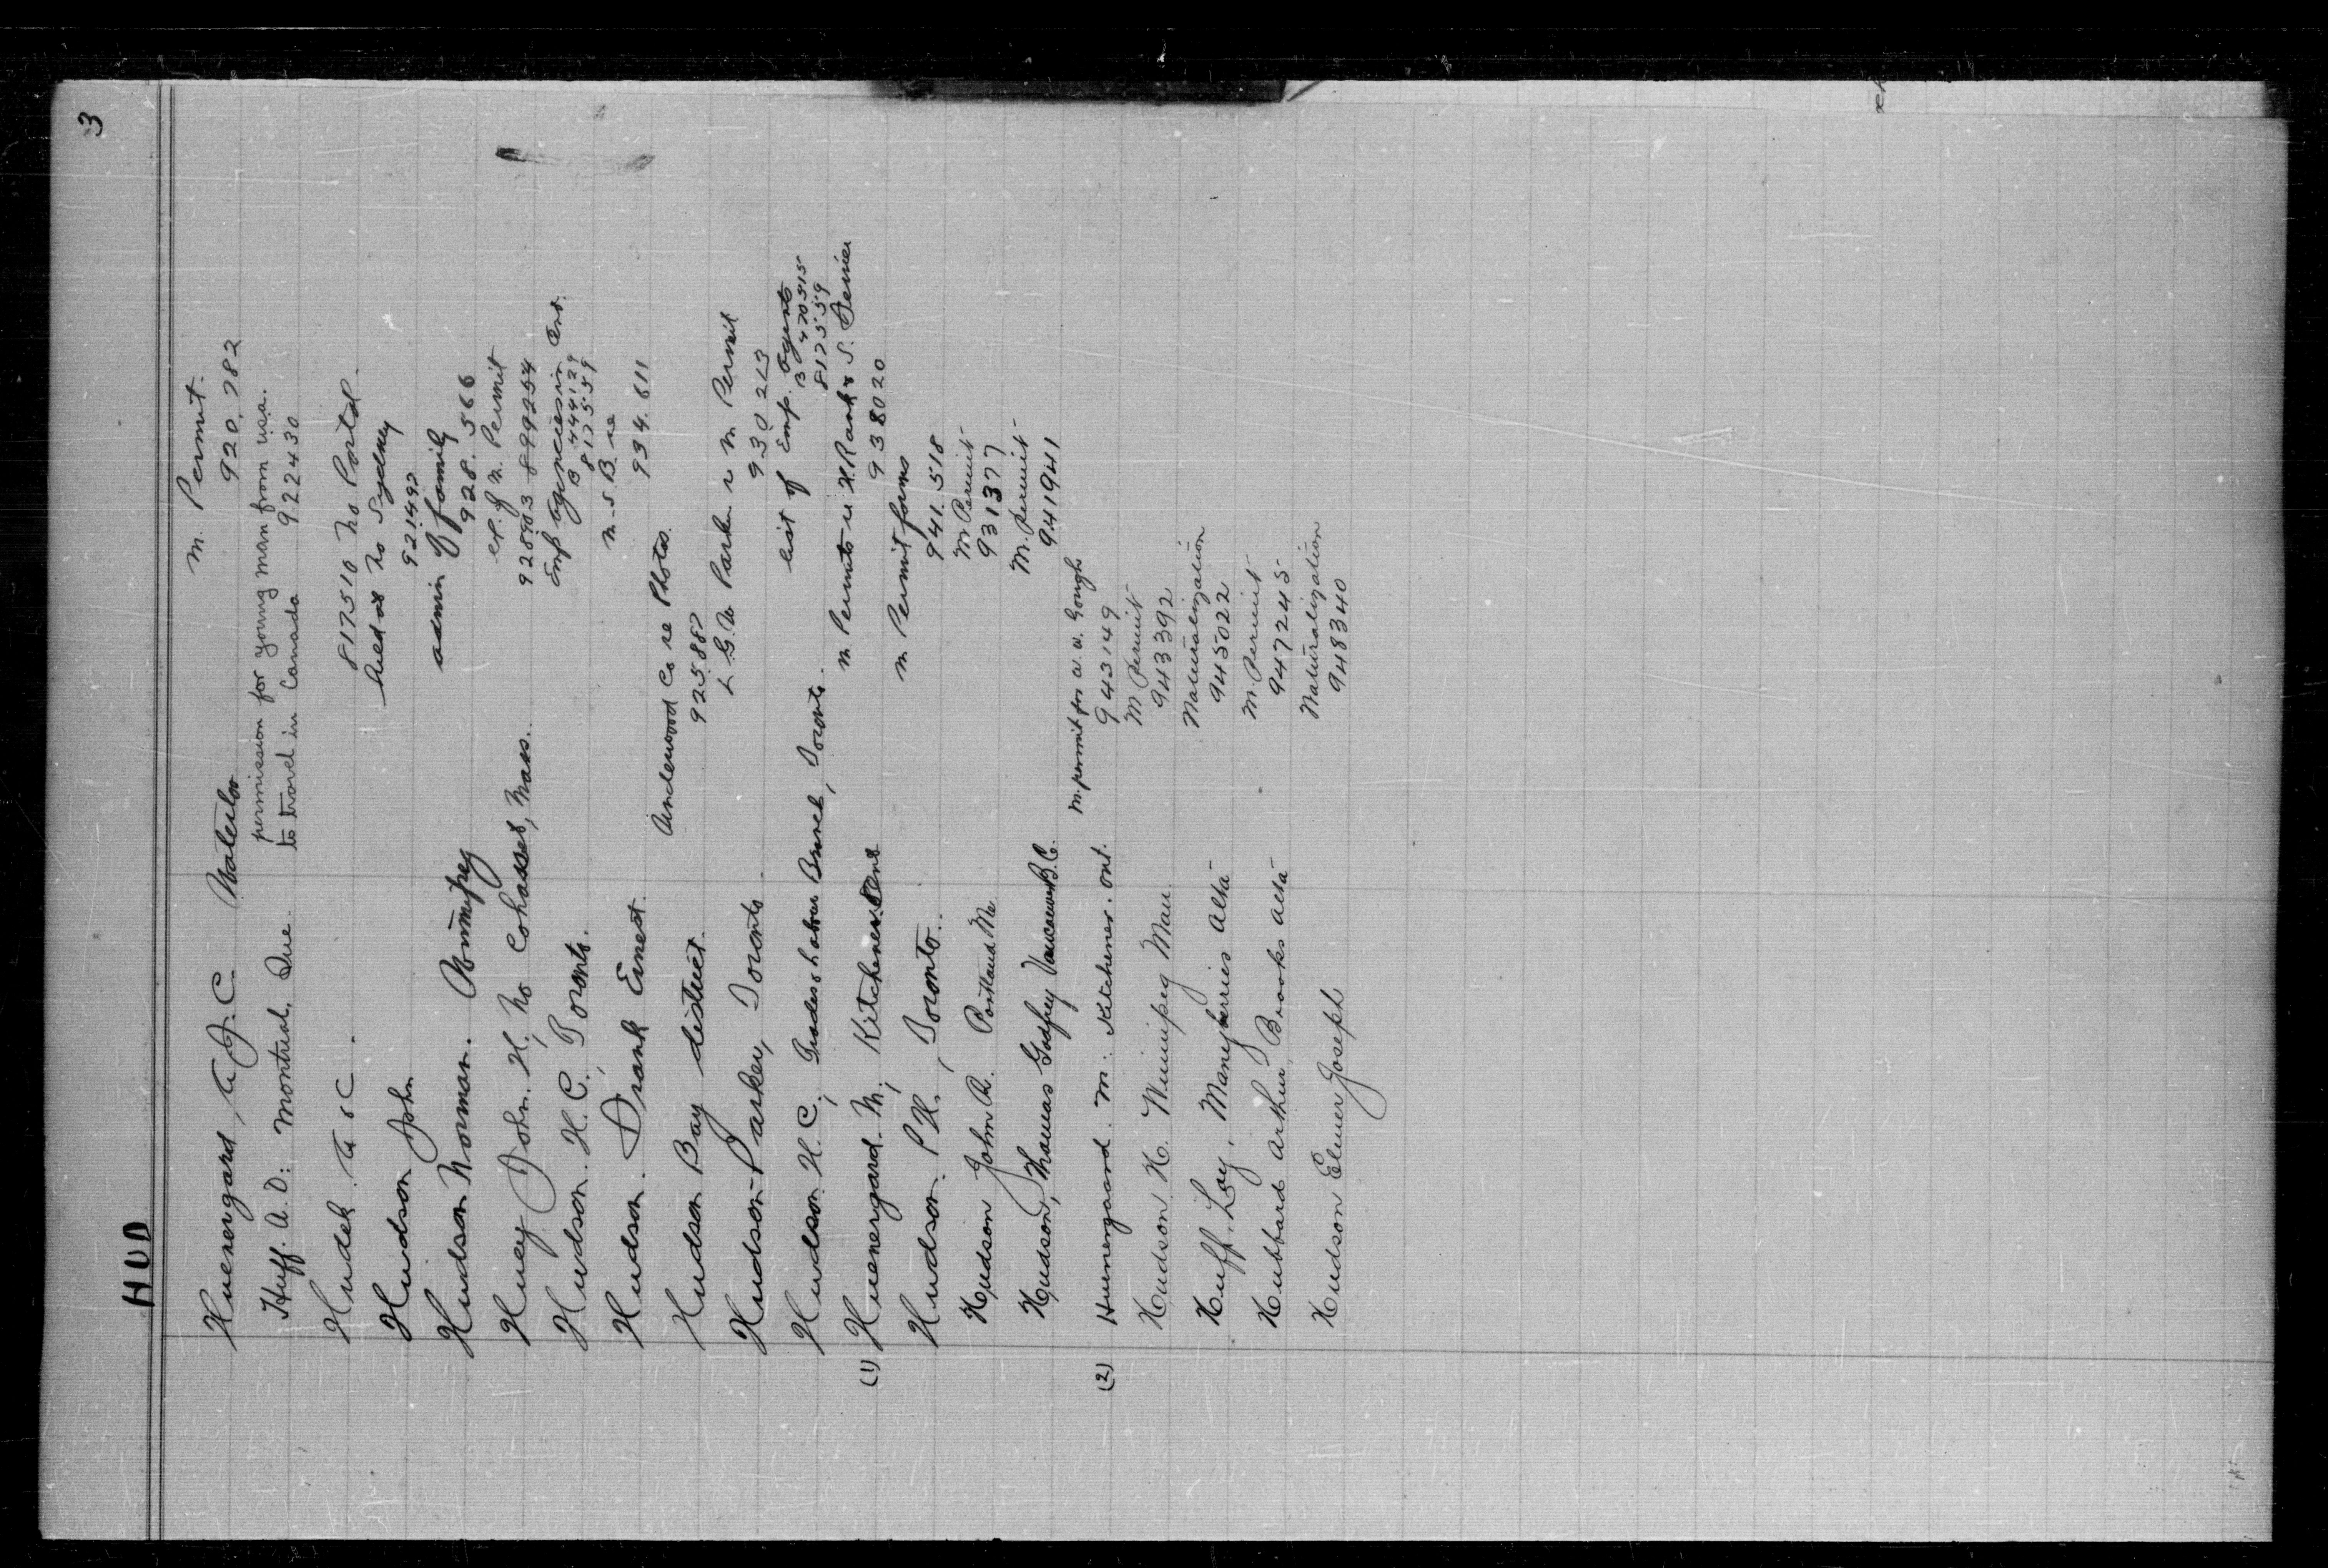 3
HUD
Huenergard, A.J.C. Waterloo M. Permit.
920,782
Huff. A. D: Montreal. Que. permission for young man from usa.
to travel in Canada 922430
Hudek 817510 No Portal.
Hudson John held at No Sydney
921492
Hudson Norman. Winnipeg admin of family
928.566
Huey John. H, No Cohasset, Mass. ex. of M. Permit
928903 899254
Hudson. H.C., Toronto. Emp agencies in Ont.
B 444129
8125559
Hudson. Frank Ernest. M.S.B re
934.611
Hudson Bay district. Underwood Co re Photos.
925887
Hudson-Parker, Toronto L.G.W Parker re M Permit
930213
Hudson H.C., Trades & Labour Branch, Toronto. list of Emp. Agents
B 470515
8125559
(1) Huenergard. M, Kitchener, Ont M Permits re H. Rank & S.
938020
Hudson. P.H., Toronto. M Permit forms
941.518
Hudson John A. Portland Me M Permit
931377
Hudson, Thomas Godfrey Vancouver B.C. M. Permit
941941
(2) Huenergaard. M: Kitchener. Ont. M. permit for W. W. Gough
943149
Hudson H. Winnipeg Man M Permit
943392
Huff, Loy, Manyberries Alta Naturalization
945022
Hubbard Arthur, Brooks Alta M. Permit
947245
Hudson Elmer Joseph Naturalization
948340